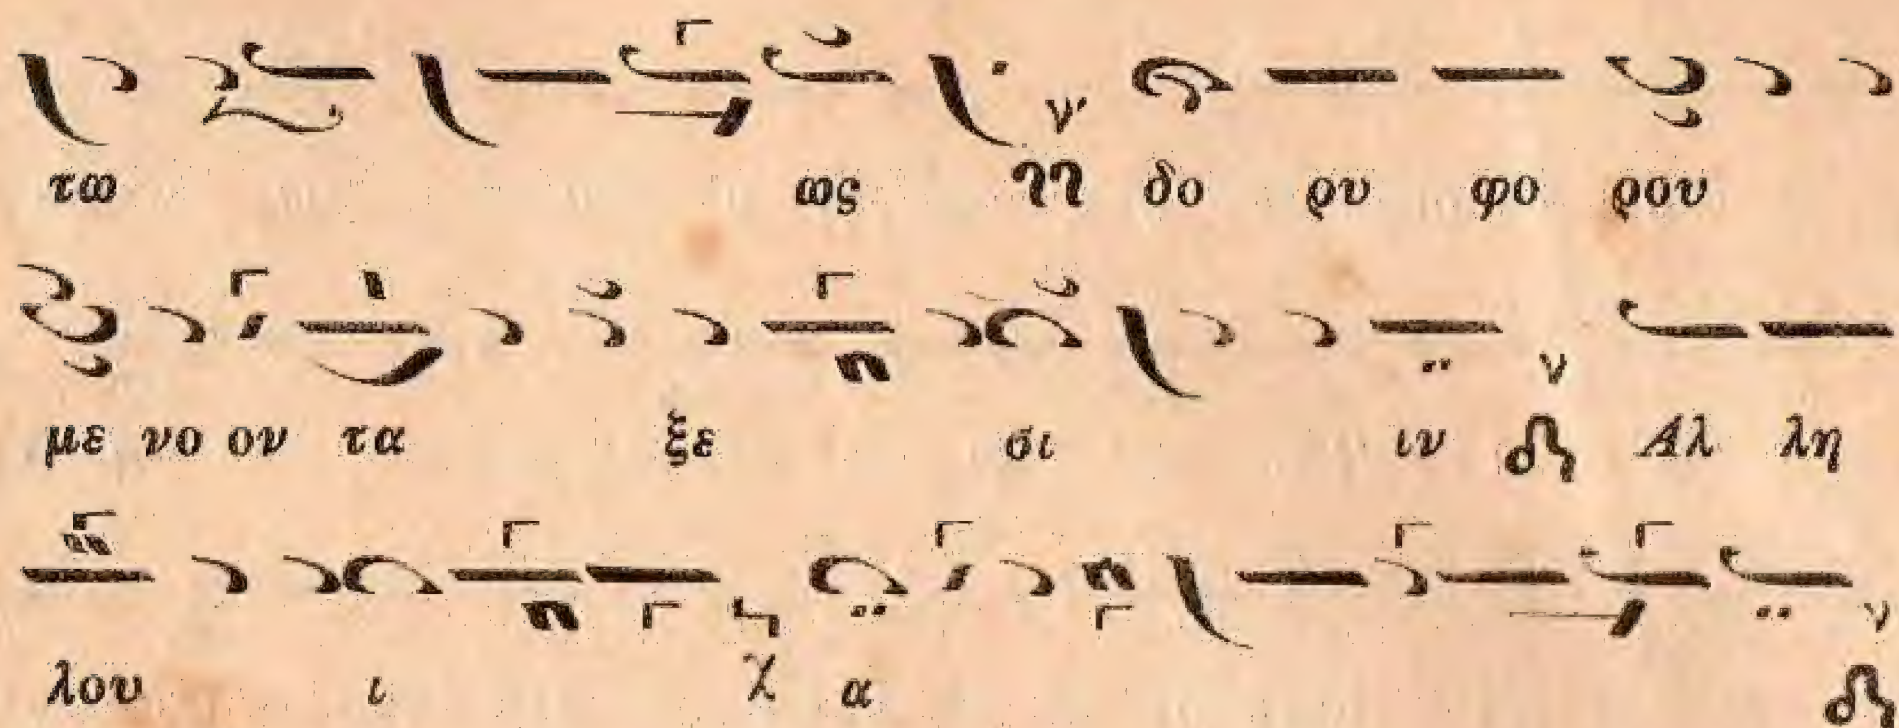 τω ως δο ρυ φο ρου
με νο ον τα ξε σι ιν Αλ λη
λου ι χ α